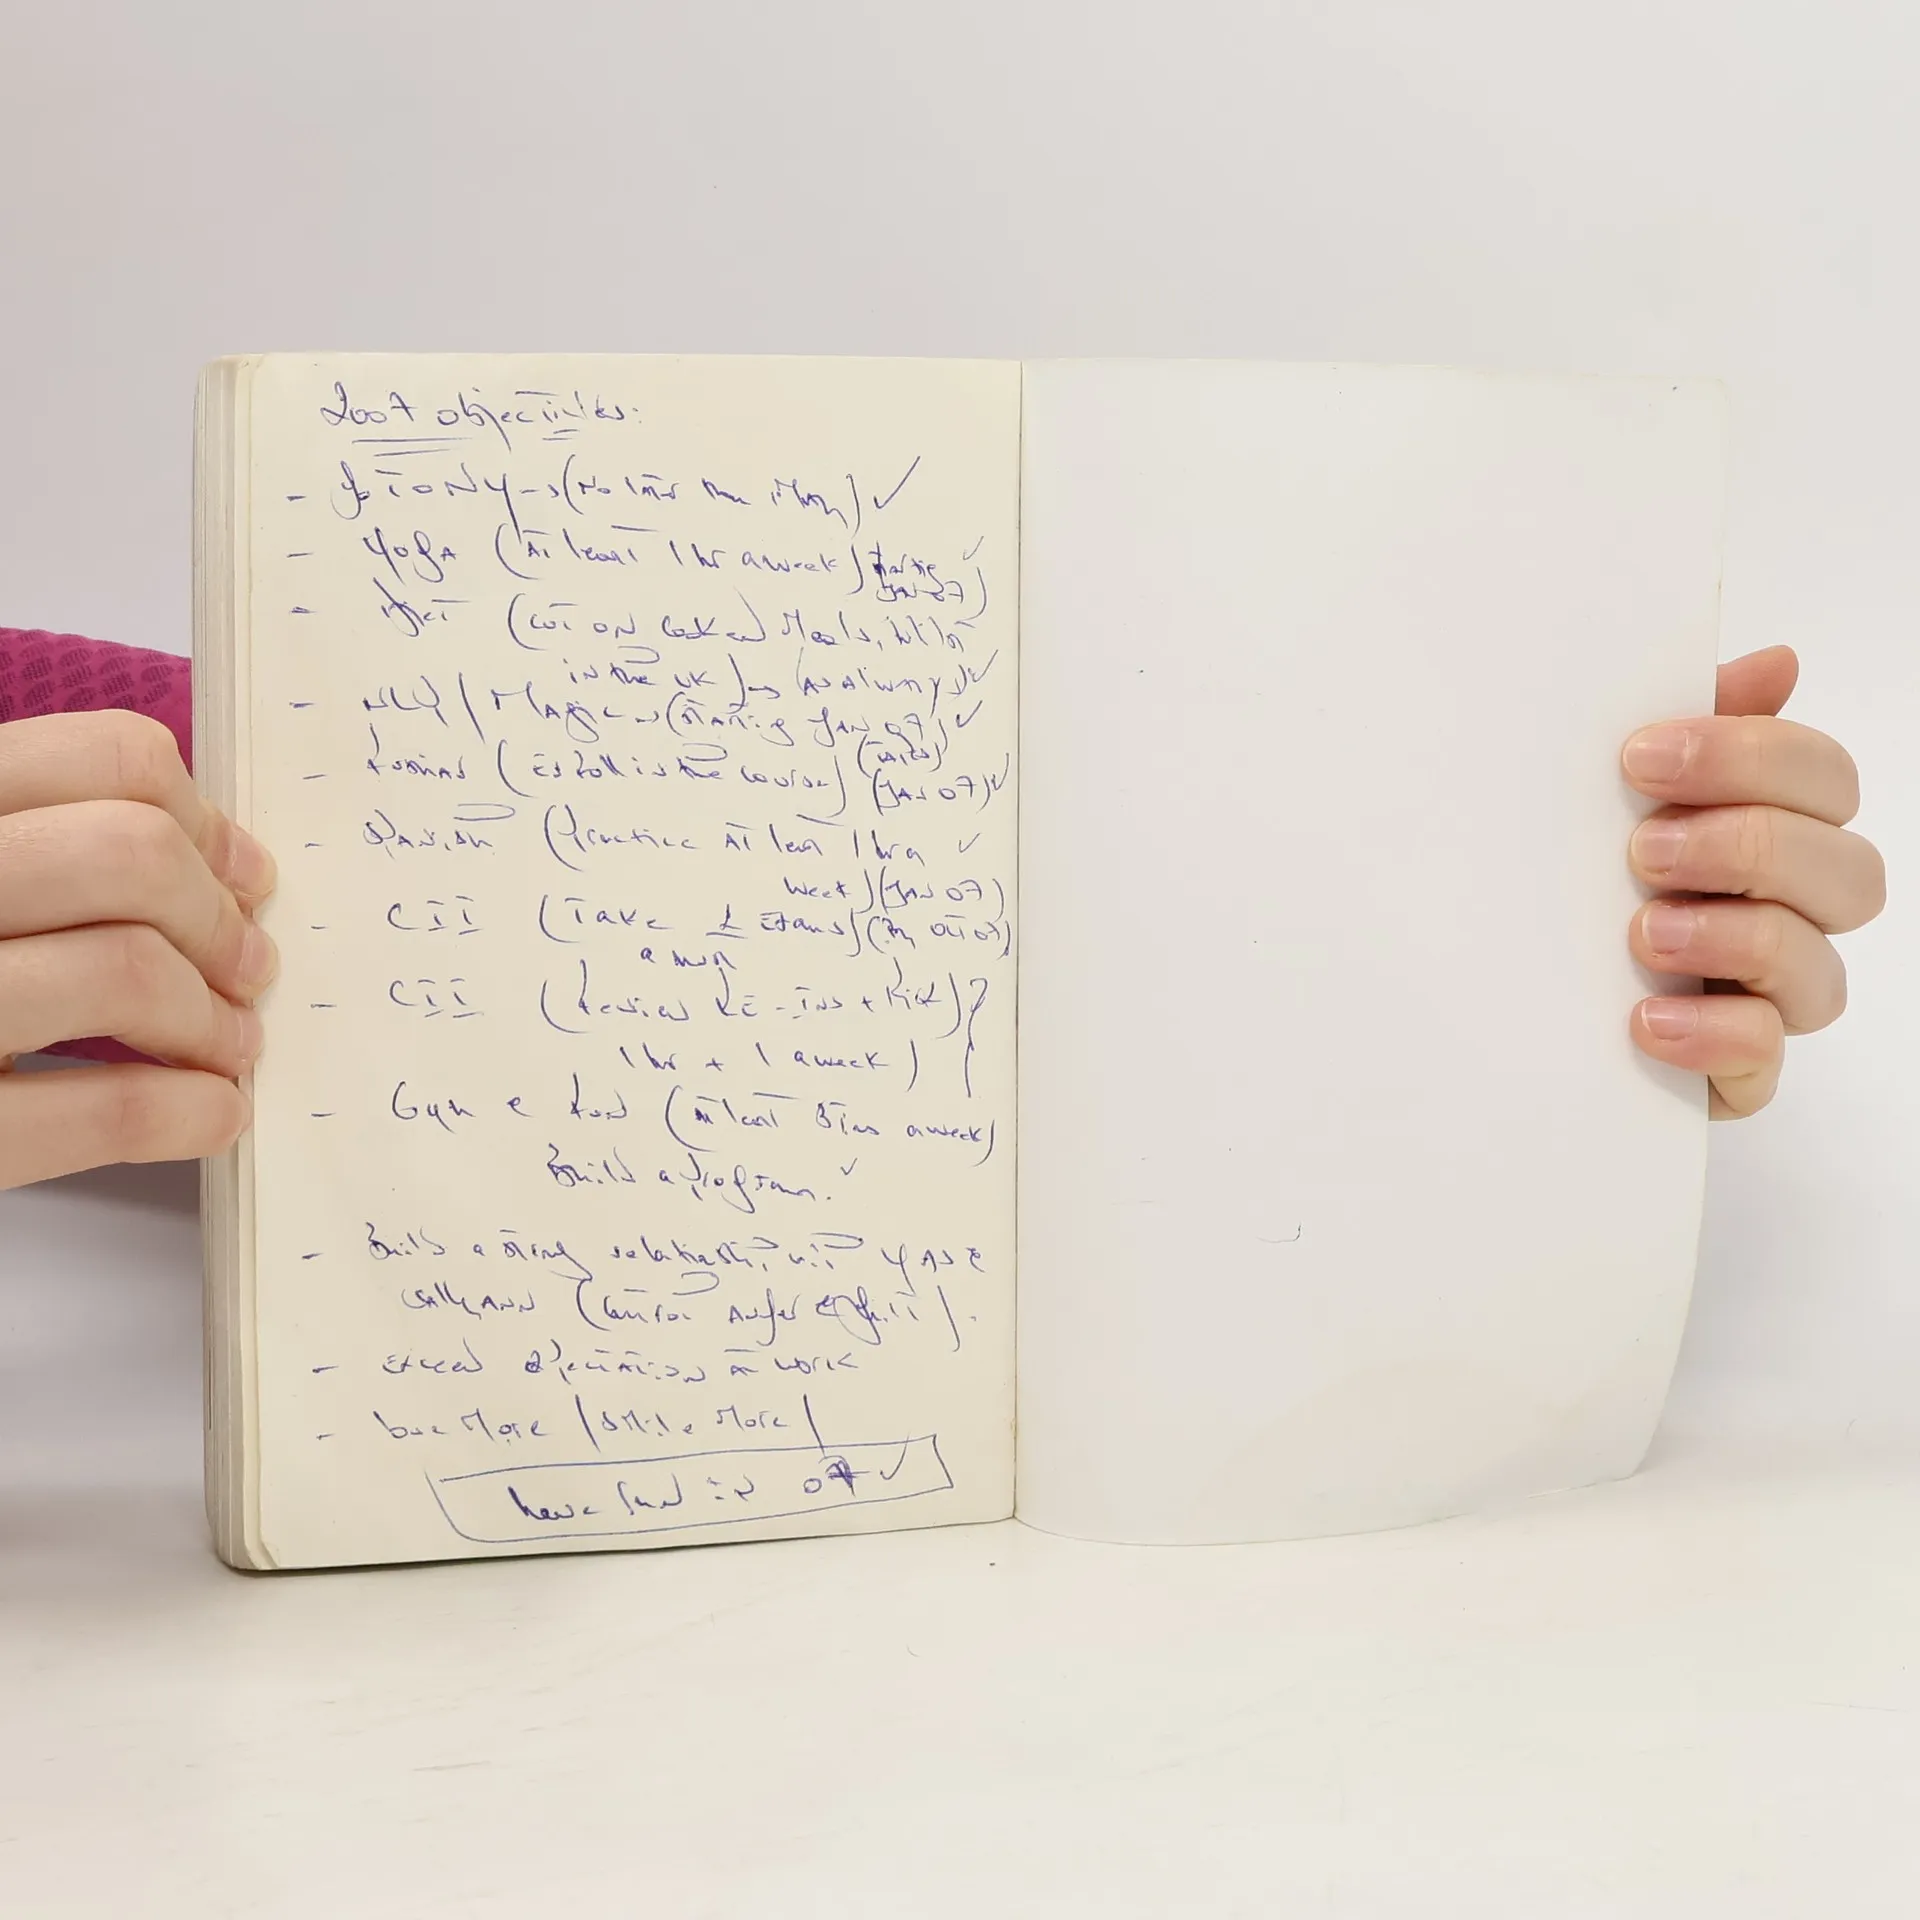 2007 objectives:
- Go to NY -> (no later than May) ✓
- Yoga (At least 1 hr a week) starting ✓
Jan 07)
- Diet (cut on cooked Meals, whilst
in the UK) -> (as always) ✓
- NLP / Magic -> (starting Jan 07) ✓
- Russian (Enroll in the course) (Jan 07) ✓
- Spanish (Practice At least 1 hr a ✓
week) (Jan 07)
- CII (Take 2 Exams) (By Oct 07)
- CII (Review RE-Ins + Risk)
1 hr + 1 a week)
- Gym e Run (At least 3 times a week)
Build a program. ✓
- Build a strong relationship with e
Sally Ann (Control Anger e ).
- Exceed expectation at work
- Love More / Smile More /
have fun in 07 ✓